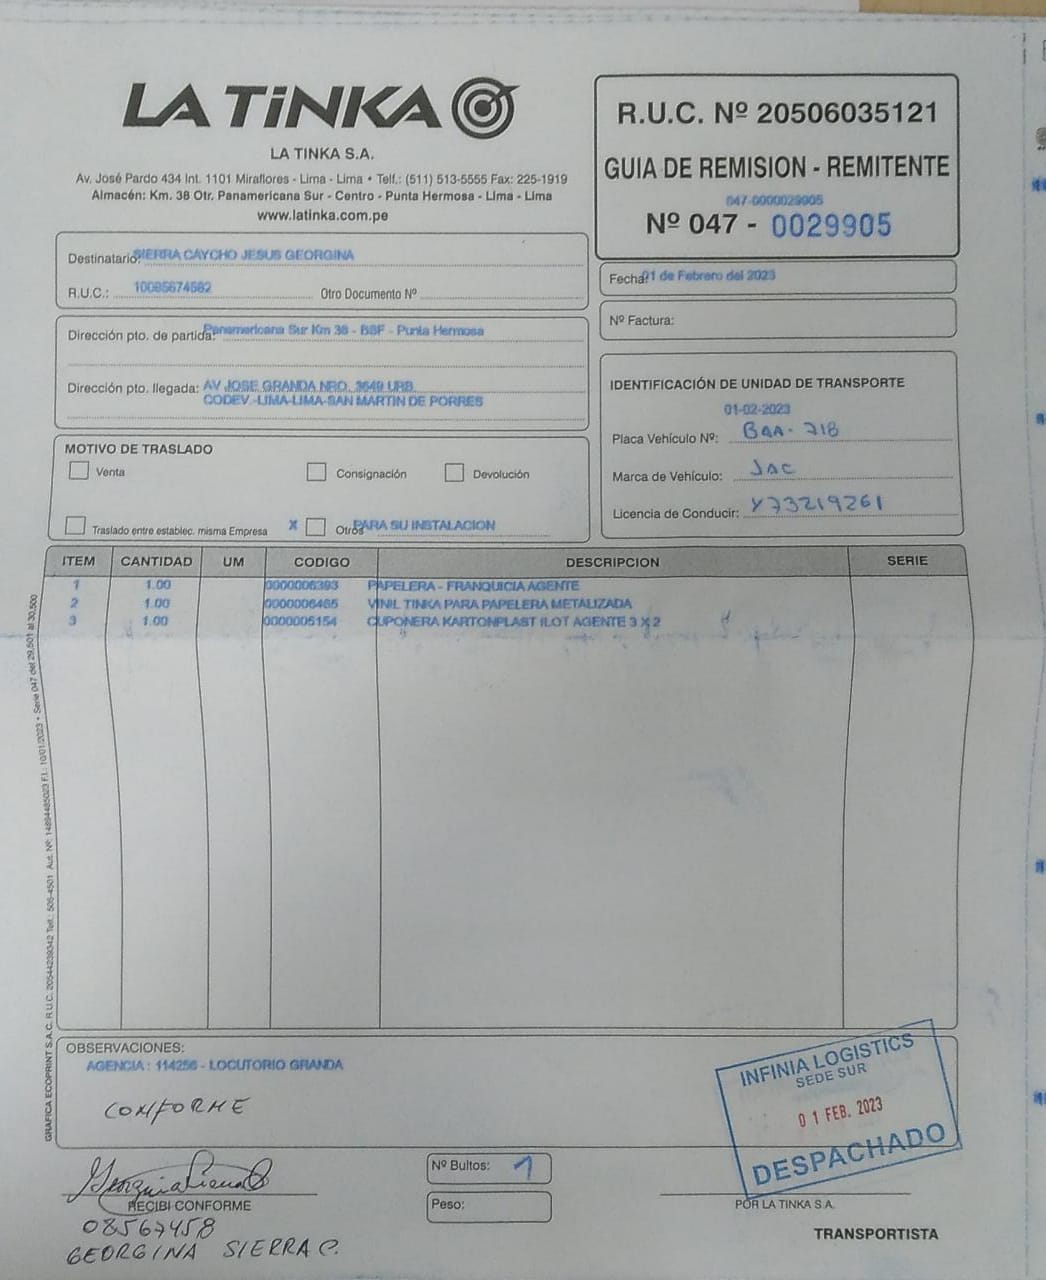 LA TiNKA
LA TINKA S.A.
Av. José Pardo 434 Int. 1101 Miraflores - Lima - Lima • Telf.: (511) 513-5555 Fax: 225-1919
Almacén: Km. 38 Otr. Panamericana Sur - Centro - Punta Hermosa - Lima - Lima
www.latinka.com.pe
R.U.C. Nº 20506035121
GUIA DE REMISION - REMITENTE
047-0000029905
Nº 047 - 0029905
Destinatario: SIERRA CAYCHO JESUS GEORGINA
R.U.C.: 10085674582 Otro Documento Nº
Fecha: 01 de Febrero del 2023
Nº Factura:
Dirección pto. de partida: Panamericana Sur Km 38 - BSF - Punta Hermosa
Dirección pto. llegada: AV JOSE GRANDA NRO. 3649 URB.
CODEV -LIMA-LIMA-SAN MARTIN DE PORRES
IDENTIFICACIÓN DE UNIDAD DE TRANSPORTE
01-02-2023
Placa Vehículo Nº: BAA-718
Marca de Vehículo: JAC
Licencia de Conducir: Y73219261
MOTIVO DE TRASLADO
Venta Consignación Devolución
Traslado entre establec. misma Empresa X Otros PARA SU INSTALACION
ITEM CANTIDAD UM CODIGO DESCRIPCION SERIE
1 1.00 0000006393 PAPELERA - FRANQUICIA AGENTE
2 1.00 0000006465 VINIL TINKA PARA PAPELERA METALIZADA
3 1.00 0000005154 CUPONERA KARTONPLAST ILOT AGENTE 3 X 2
GRAFICA ECOPRINT S.A.C. R.U.C. 20544239342 Telf.: 505-4501 Aut. Nº: 14894485023 F.I.: 10/01/2023 • Serie 047 del 29,501 al 30,500
OBSERVACIONES:
AGENCIA : 114256 - LOCUTORIO GRANDA
CONFORME
INFINIA LOGISTICS
SEDE SUR
01 FEB. 2023
DESPACHADO
Nº Bultos: 1
Peso:
RECIBI CONFORME
08567458
GEORGINA SIERRA C.
POR LA TINKA S.A.
TRANSPORTISTA